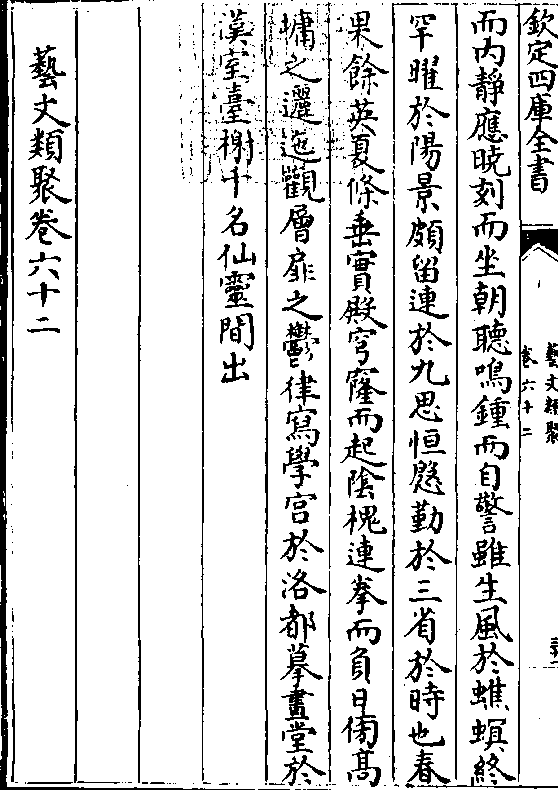 欽定四庫全書
藝文類聚
卷六十二
而内静應曉刻而坐朝聽鳴鍾而自警雖生風於蟭螟終
罕曜於陽景頗留連於九思恒慇勤於三省於時也春
果餘英夏條垂實殿穹窿而起陰槐連拳而負日傍髙
墉之邐迤觀層扉之鬱律寫學宫於洛都摹畫堂於
漢室臺榭千名仙靈間出
藝文類聚卷六十二